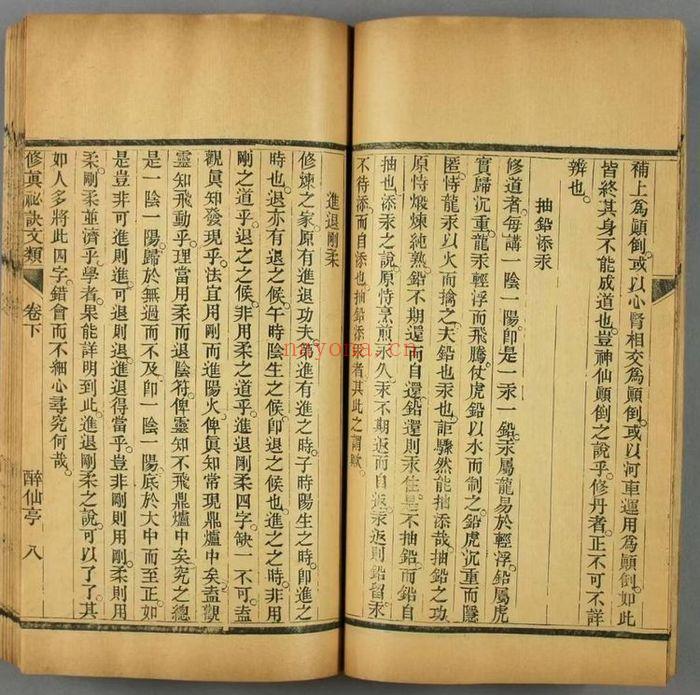 補上爲顚倒。或以心腎相交爲顚倒。或以河車運用爲顚倒。如此
皆終其身不能成道也。豈神仙顚倒之說乎。修丹者。正不可不詳
辨也。
抽鉛添汞
修道者。每講一陰一陽。卽是一汞一鉛。汞屬龍易於輕浮。鉛屬虎
實歸沉重。龍汞輕浮而飛騰。仗虎鉛以水而制之。鉛虎沉重而隱
匿。恃龍汞以火而擒之。夫鉛也汞也。詎驟然能抽添哉。抽鉛之功
原恃煅煉純熟。鉛不期還而自還。鉛還則汞住。是不抽鉛。而鉛自
抽也。添汞之說。原恃烹煎永久。汞不期返而自返。汞返則鉛留。汞
不待添而自添也。抽鉛添汞者其此之謂歟。
進退剛柔
修煉之家。原有進退功夫。進有進之時。子時陽生之時。卽進之
時也。退亦有退之候。午時陰生之候。卽退之候也。進之之時。非用
剛之道乎。退之之候。非用柔之道乎。進退剛柔四字。缺一不可。盍
觀眞知發現乎。法宜用剛而進陽火。俾眞知常現鼎爐中矣。盍觀
靈知飛動乎。理當用柔而退陰符。俾靈知不飛鼎爐中矣。究之總
是一陰一陽。歸於無過而不及。卽一陰一陽。底於大中而至正。如
是豈非可進則進。可退則退。進退得當乎。豈非剛則用剛。柔則用
柔。剛柔並濟乎。學者果能詳明到此。進退剛柔之說。可以了了。其
如人多將此四字。錯會而不細心尋究何哉。
修眞祕訣文類 卷下 醉仙亭 八
nayona.cn